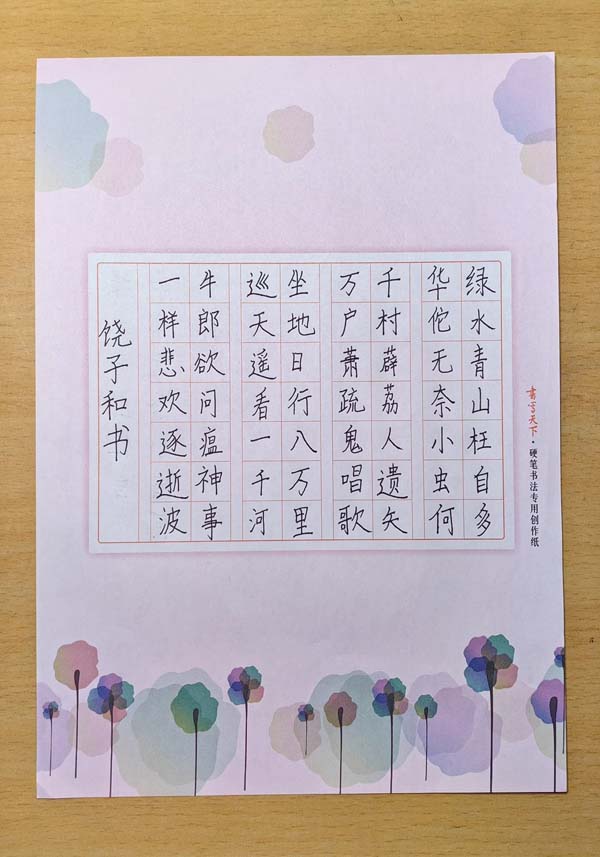 绿水青山枉自多
华佗无奈小虫何
千村薜荔人遗矢
万户萧疏鬼唱歌
坐地日行八万里
巡天遥看一千河
牛郎欲问瘟神事
一样悲欢逐逝波
饶子和书
书写天下·硬笔书法专用创作纸